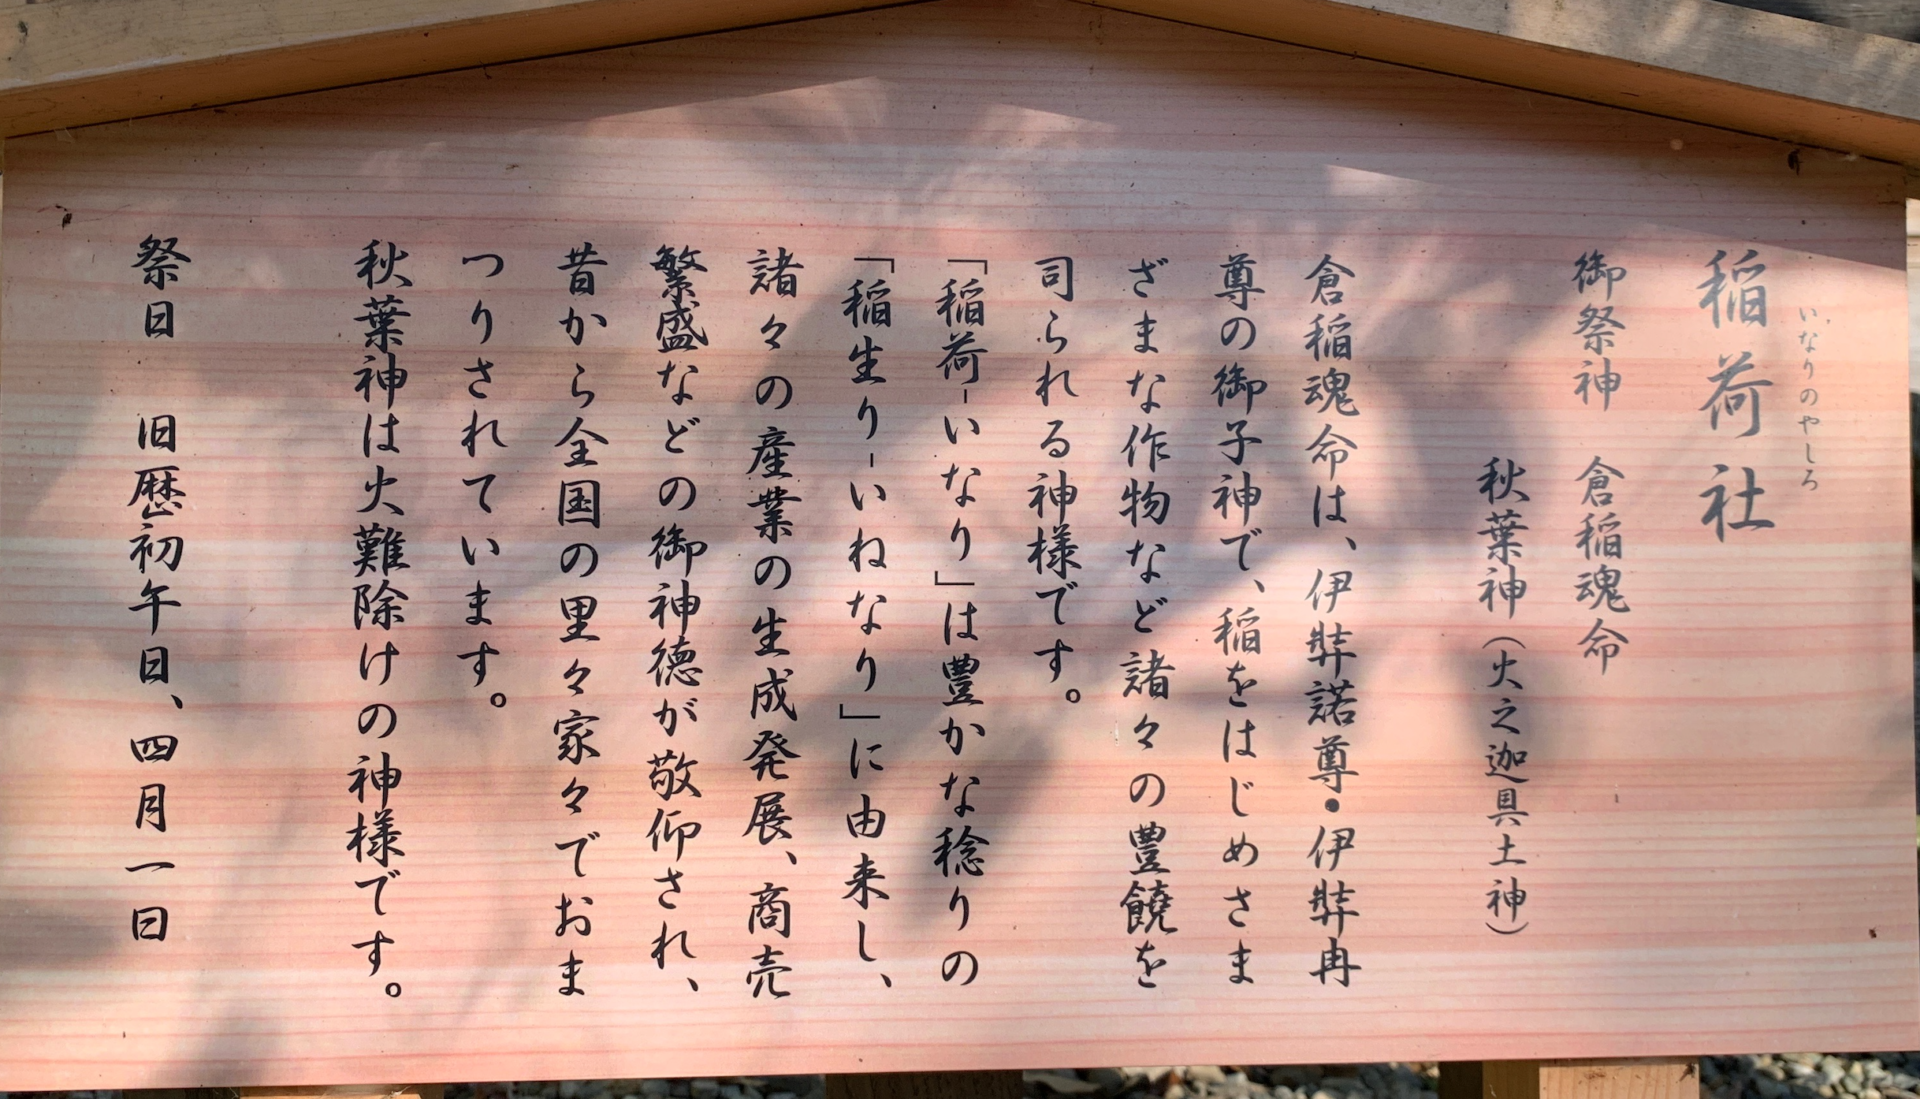 稲荷社
いなりのやしろ
御祭神　倉稲魂命
秋葉神（火之迦具土神）
倉稲魂命は、伊弉諾尊・伊弉冉
尊の御子神で、稲をはじめさま
ざまな作物など諸々の豊饒を
司られる神様です。
「稲荷-いなり」は豊かな稔りの
「稲生り-いねなり」に由来し、
諸々の産業の生成発展、商売
繁盛などの御神徳が敬仰され、
昔から全国の里々家々でおま
つりされています。
秋葉神は火難除けの神様です。
祭日　旧暦初午日、四月一日